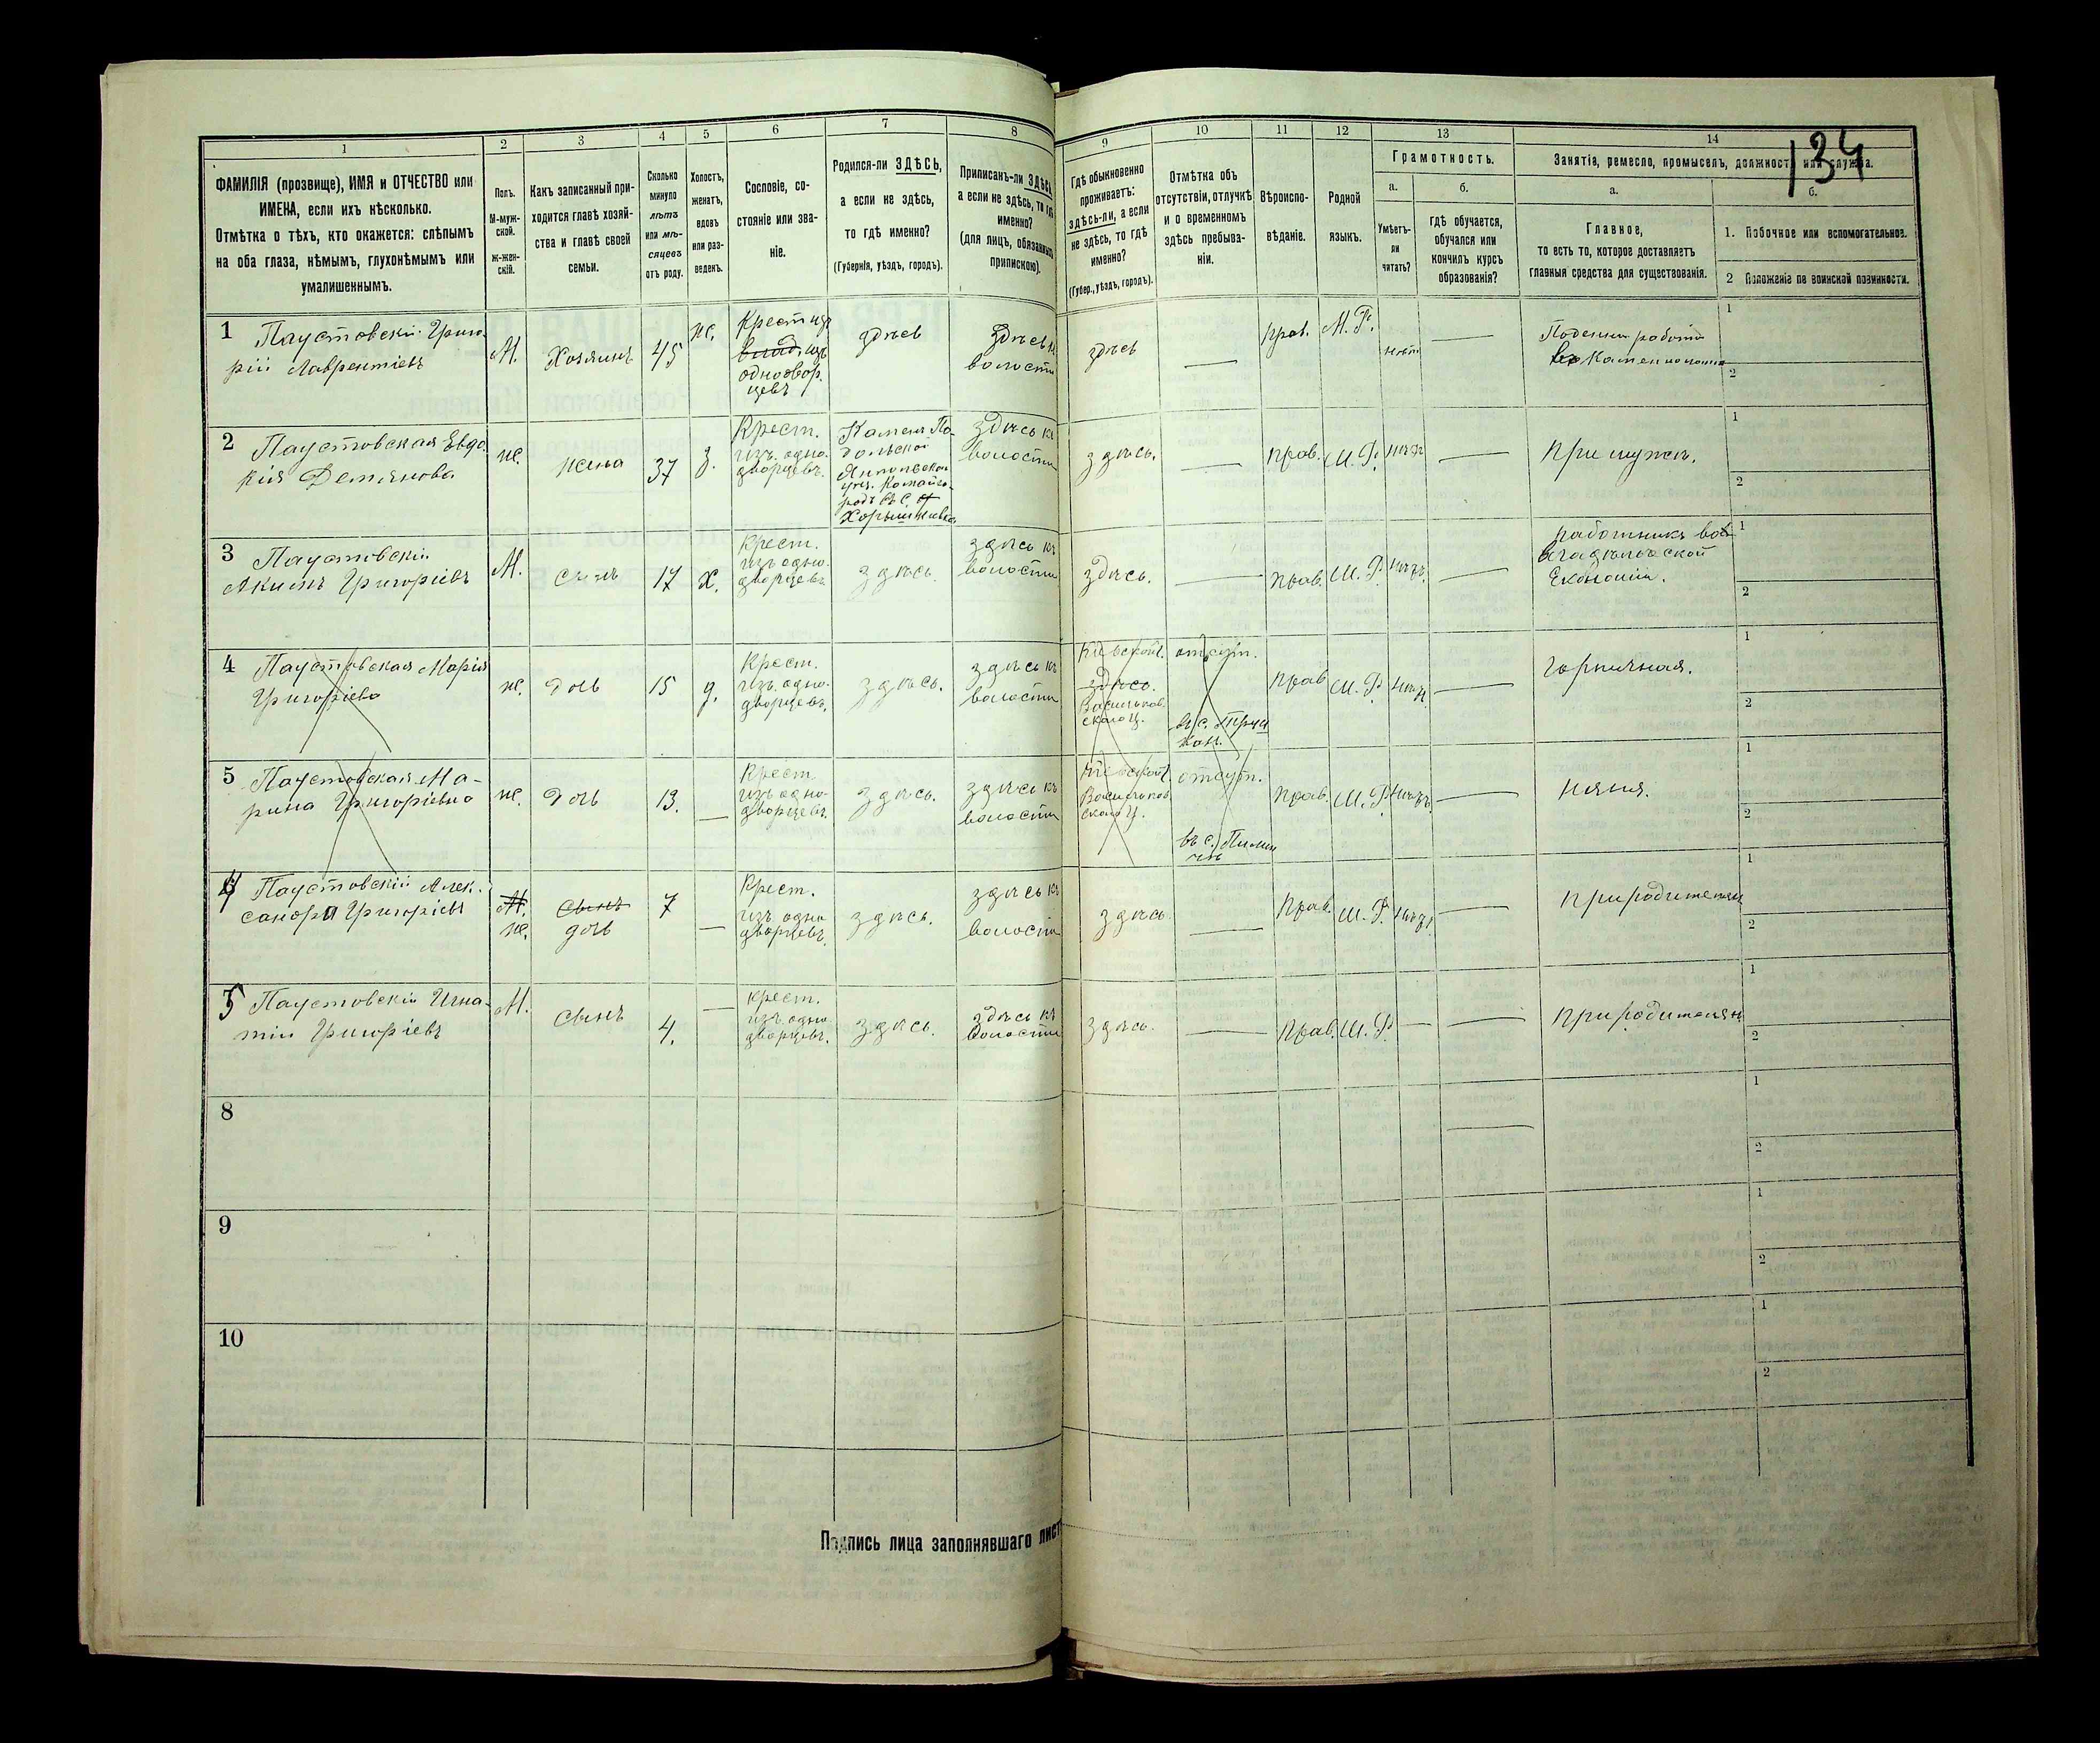 134
1
2
3
4
5
6
7
8
9
10
11
12
13
14
ФАМИЛІЯ (прозвище), ИМЯ и ОТЧЕСТВО или
ИМЕНА, если ихъ нѣсколько.
Отмѣтка о тѣхъ, кто окажется: слѣпымъ
на оба глаза, нѣмымъ, глухонѣмымъ или
умалишеннымъ.
Полъ.
М-муж-
ской.
ж-жен-
скій.
Какъ записанный при-
ходится главѣ хозяй-
ства и главѣ своей
семьи.
Сколько
минуло
лѣтъ
или мѣ-
сяцевъ
отъ роду.
Холостъ,
женатъ,
вдовъ
или раз-
веденъ.
Сословіе, со-
стояніе или зва-
ніе.
Родился-ли ЗДѢСЬ,
а если не здѣсь,
то гдѣ именно?
(Губернія, уѣздъ, городъ).
Приписанъ-ли ЗДѢСЬ
а если не здѣсь, то гдѣ
именно?
(для лицъ, обязанныхъ
припискою).
Гдѣ обыкновенно
проживаетъ:
здѣсь-ли, а если
не здѣсь, то гдѣ
именно?
(Губер., уѣздъ, городъ).
Отмѣтка объ
отсутствіи, отлучкѣ
и о временномъ
здѣсь пребыва-
ніи.
Вѣроиспо-
вѣданіе.
Родной
языкъ.
Грамотность.
а.
б.
Умѣетъ-
ли
читать?
гдѣ обучается,
обучался или
кончилъ курсъ
образованія?
Занятія, ремесло, промыселъ, должность или служба.
а.
б.
Главное,
то есть то, которое доставляетъ
главныя средства для существованія.
1. Побочное или вспомогательное.
2 Положеніе по воинской повинности.
1 Паустовскій Григо-
рій Лаврентіевъ
М.
Хозяинъ
45
ж.
Крест изъ
однодвор.
цевъ
здѣсь
здѣсь къ
волости
здѣсь
—
прав.
М. Р.
нѣтъ
—
Поденни работн
1
2
2 Паустовская Евдо
кія Демянова
ж.
жена
37
з.
Крест.
изъ одно-
дворцевъ.
Камен По-
дольской
Ямпольскои
Хорьшневка
здѣсь къ
волости
здѣсь.
—
прав.
М. Р.
нѣтъ
—
При мужѣ.
1
2
3 Паустовскій
Акимъ Григоріевъ
М.
Сынъ
17
х.
Крест.
изъ одно-
дворцевъ
здѣсь.
здѣсь къ
волости
здѣсь.
—
прав.
М. Р.
нѣтъ.
—
работникъ во
владѣльческой
Економіи.
1
2
4 Паустовская Марія
Григоріева
ж.
дочь
15
д.
Крест.
изъ одно-
дворцевъ.
здѣсь.
здѣсь къ
волости
Кіевской г.
здѣсь.
Васильков.
скаго у.
отсут.
прав
М. Р.
нѣтъ
—
горничная.
1
2
5 Паустовская Ма-
рина Григоріевна
ж.
дочь
13.
—
Крест
изъ одно-
дворцевъ.
здѣсь.
здѣсь къ
волости
Кіевской г.
Васильков
скаго у.
отсут.
прав.
М. Р.
нѣтъ
—
няня.
1
2
4 Паустовскій Алек.
сандра Григоріевъ
М.
ж.
Сынъ
дочь
7
—
Крест.
изъ одно
дворцевъ.
здѣсь.
здѣсь къ
волости
здѣсь
—
Прав.
М. Р.
нѣтъ
при родителях
1
2
5 Паустовскій Игна-
тій Григоріевъ
М.
Сынъ
4.
—
крест.
изъ одно
дворцевъ.
здѣсь.
здѣсь къ
волости
здѣсь.
—
Прав.
М. Р.
—
—
при родителяхъ
1
2
8
1
2
9
1
2
10
1
2
Подпись лица заполнявшаго лист